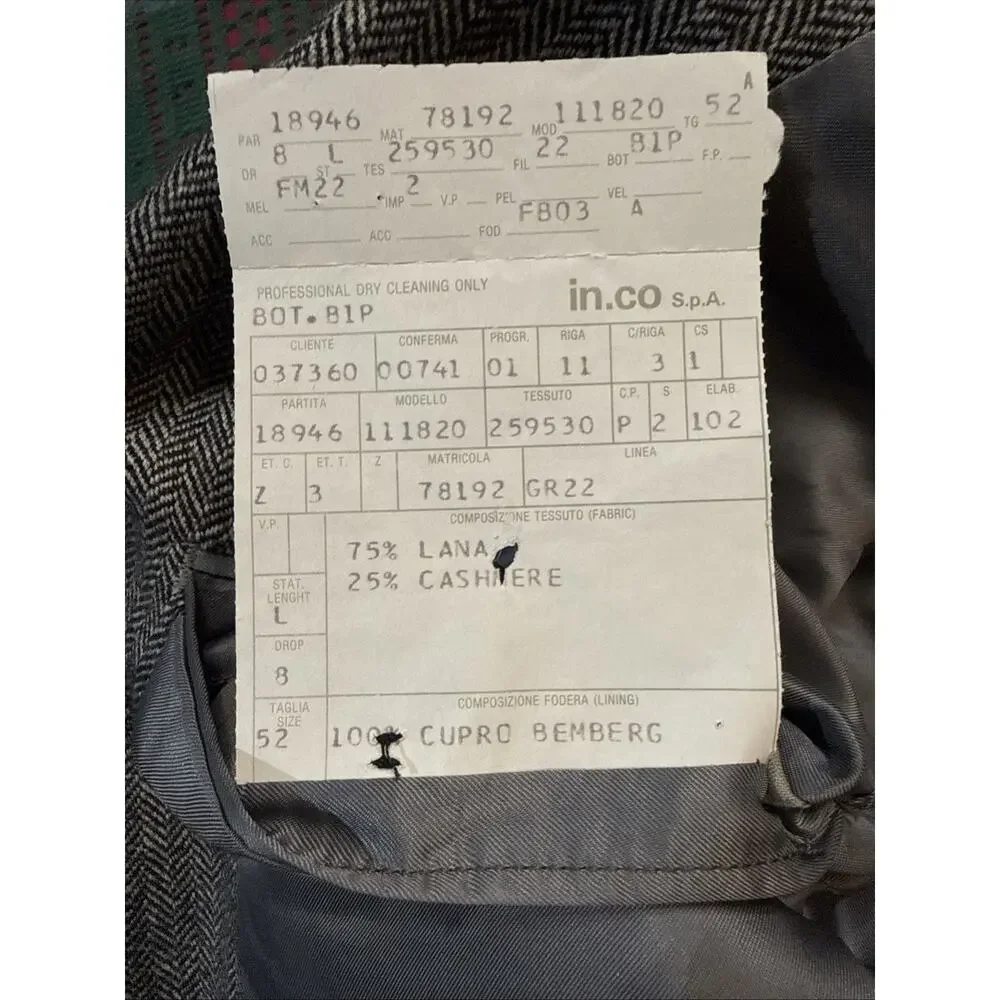 A
PAR 18946 MAT 78192 MOD 111820 TG 52
DR 8 ST L TES 259530 FIL 22 BOT B1P F.P.
MEL FM22 IMP 2 V.P PEL VEL
ACC ACC FOD FB03 A
PROFESSIONAL DRY CLEANING ONLY in.co S.p.A.
BOT. B1P
CLIENTE CONFERMA PROGR. RIGA C/RIGA CS
037360 00741 01 11 3 1
PARTITA MODELLO TESSUTO C.P. S ELAB.
18946 111820 259530 P 2 102
ET. C. ET. T. Z MATRICOLA LINEA
Z 3 78192 GR22
V.P. COMPOSIZIONE TESSUTO (FABRIC)
75% LANA
25% CASHMERE
STAT.
LENGHT
L
DROP
8
TAGLIA COMPOSIZIONE FODERA (LINING)
SIZE
52 100% CUPRO BEMBERG